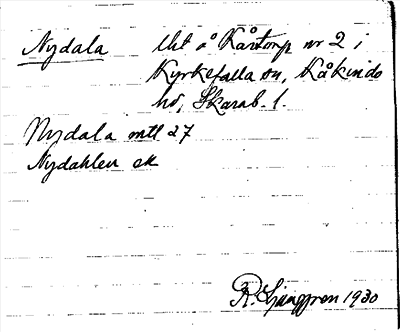 Nydala Utt å Kårtorp nr 2 i
Kyrkefalla sn, Kåkinds
hd, Skarab. l.
Nydala mtl 27
Nydahlen ek
R. Ljunggren 1930